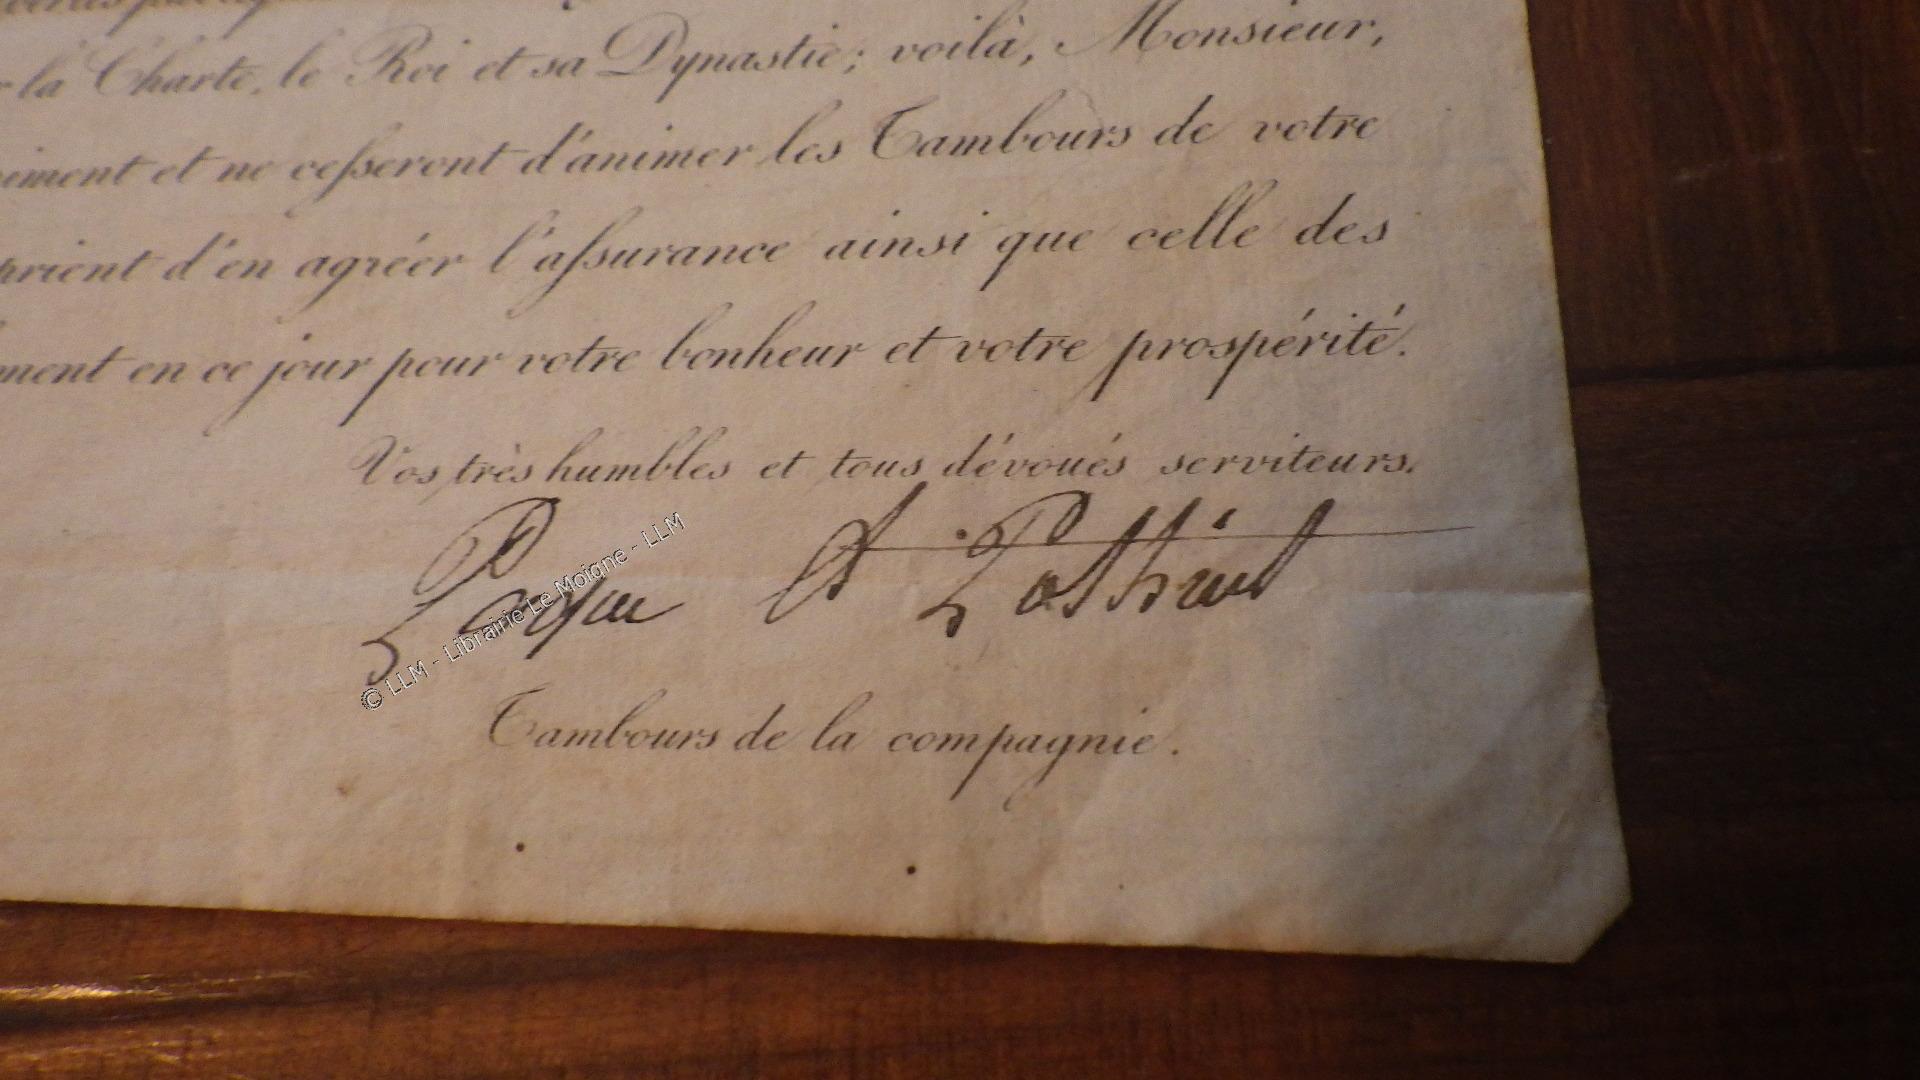 la Charte, le Roi et sa Dynastie; voilà, Monsieur,
iment et ne cesseront d'animer les Tambours de votre
prient d'en agréer l'assurance ainsi que celle des
ment en ce jour pour votre bonheur et votre prospérité.
Vos très humbles et tous dévoués serviteurs.
et
© LLM - Librairie Le Moigne - LLM
Tambours de la compagnie.